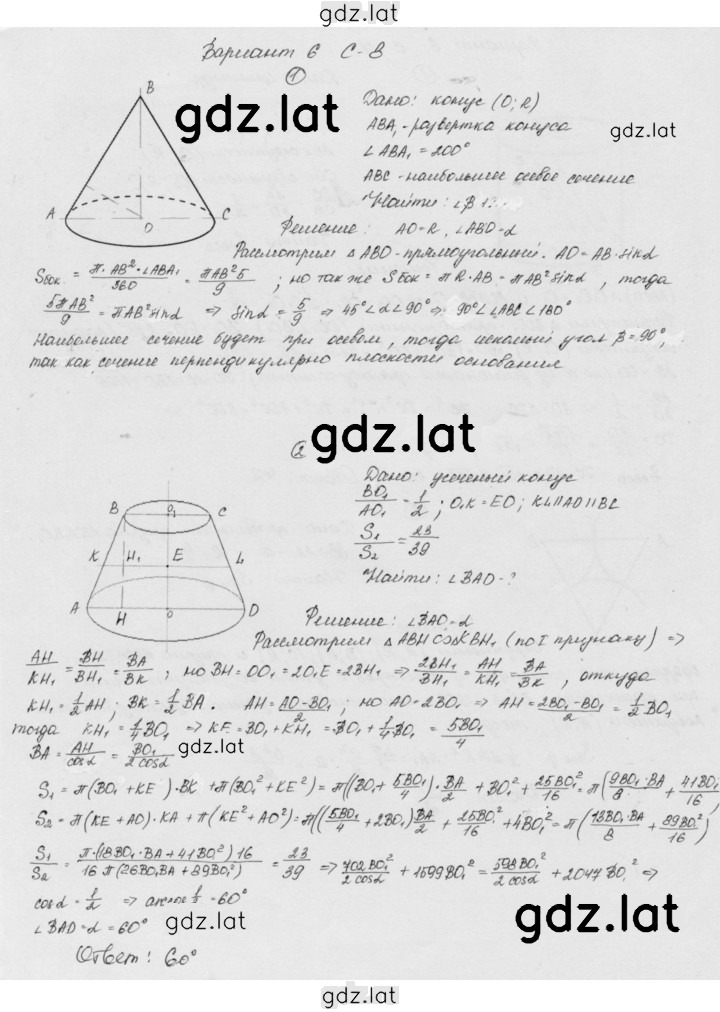 gdz.lat
Вариант 6 С-8
①
B
gdz.lat
Дано: конус (O; R)
ABA₁ - развертка конуса
gdz.lat
∠ABA₁ = 200°
ABC - наибольшее осевое сечение
Найти: ∠B
A O C
Решение: AO=R, ∠ABO=α
Рассмотрим △ABO - прямоугольный. AO = AB·sinα
Sбок = π·AB²·∠ABA₁/360 = πAB²5/9 ; но так же Sбок = πR·AB = πAB²sinα, тогда
5πAB²/9 = πAB²sinα ⇒ sinα = 5/9 ⇒ 45°∠α∠90° ⇒ 90°∠∠ABC∠180°
Наибольшее сечение будет при осевом, тогда искомый угол β=90°,
так как сечение перпендикулярно плоскости основания
gdz.lat
②
Дано: усеченый конус
BO₁/AO = 1/2 ; O₁K = EO ; KL∥AD∥BC
S₁/S₂ = 23/39
Найти: ∠BAD-?
B O₁ C
K H₁ E L
A H O D
Решение: ∠BAD=α
Рассмотрим △ABH∽△KBH₁ (по I признаку) ⇒
AH/KH₁ = BH/BH₁ = BA/BK ; но BH=OO₁=2O₁E=2BH₁ ⇒ 2BH₁/BH₁ = AH/KH₁ = BA/BK , откуда
KH₁ = 1/2 AH ; BK = 1/2 BA. AH = AO-BO₁/2 ; но AO=2BO₁ ⇒ AH = 2BO₁-BO₁/2 = 1/2 BO₁
тогда KH₁ = 1/4 BO₁ ⇒ KE = BO₁+KH₁ = BO₁ + 1/4 BO₁ = 5BO₁/4
BA = AH/cosα = BO₁/2cosα
gdz.lat
S₁ = π(BO₁ + KE)·BK + π(BO₁² + KE²) = π((BO₁ + 5BO₁/4)·BA/2 + BO₁² + 25BO₁²/16 = π(9BO₁·BA/8 + 41BO₁/16)
S₂ = π(KE + AO)·KA + π(KE² + AO²) = π((5BO₁/4 + 2BO₁)BA/2 + 25BO₁²/16 + 4BO₁² = π(13BO₁·BA/8 + 89BO₁²/16)
S₁/S₂ = π·(18BO₁·BA + 41BO₁²)16/16π(26BO₁BA + 89BO₁²) = 23/39 ⇒ 702BO₁²/2cosα + 1599BO₁² = 598BO₁²/2cosα + 2047BO₁² ⇒
cosα = 1/2 ⇒ arccos 1/2 = 60°
gdz.lat
∠BAD=α=60°
Ответ: 60°
gdz.lat